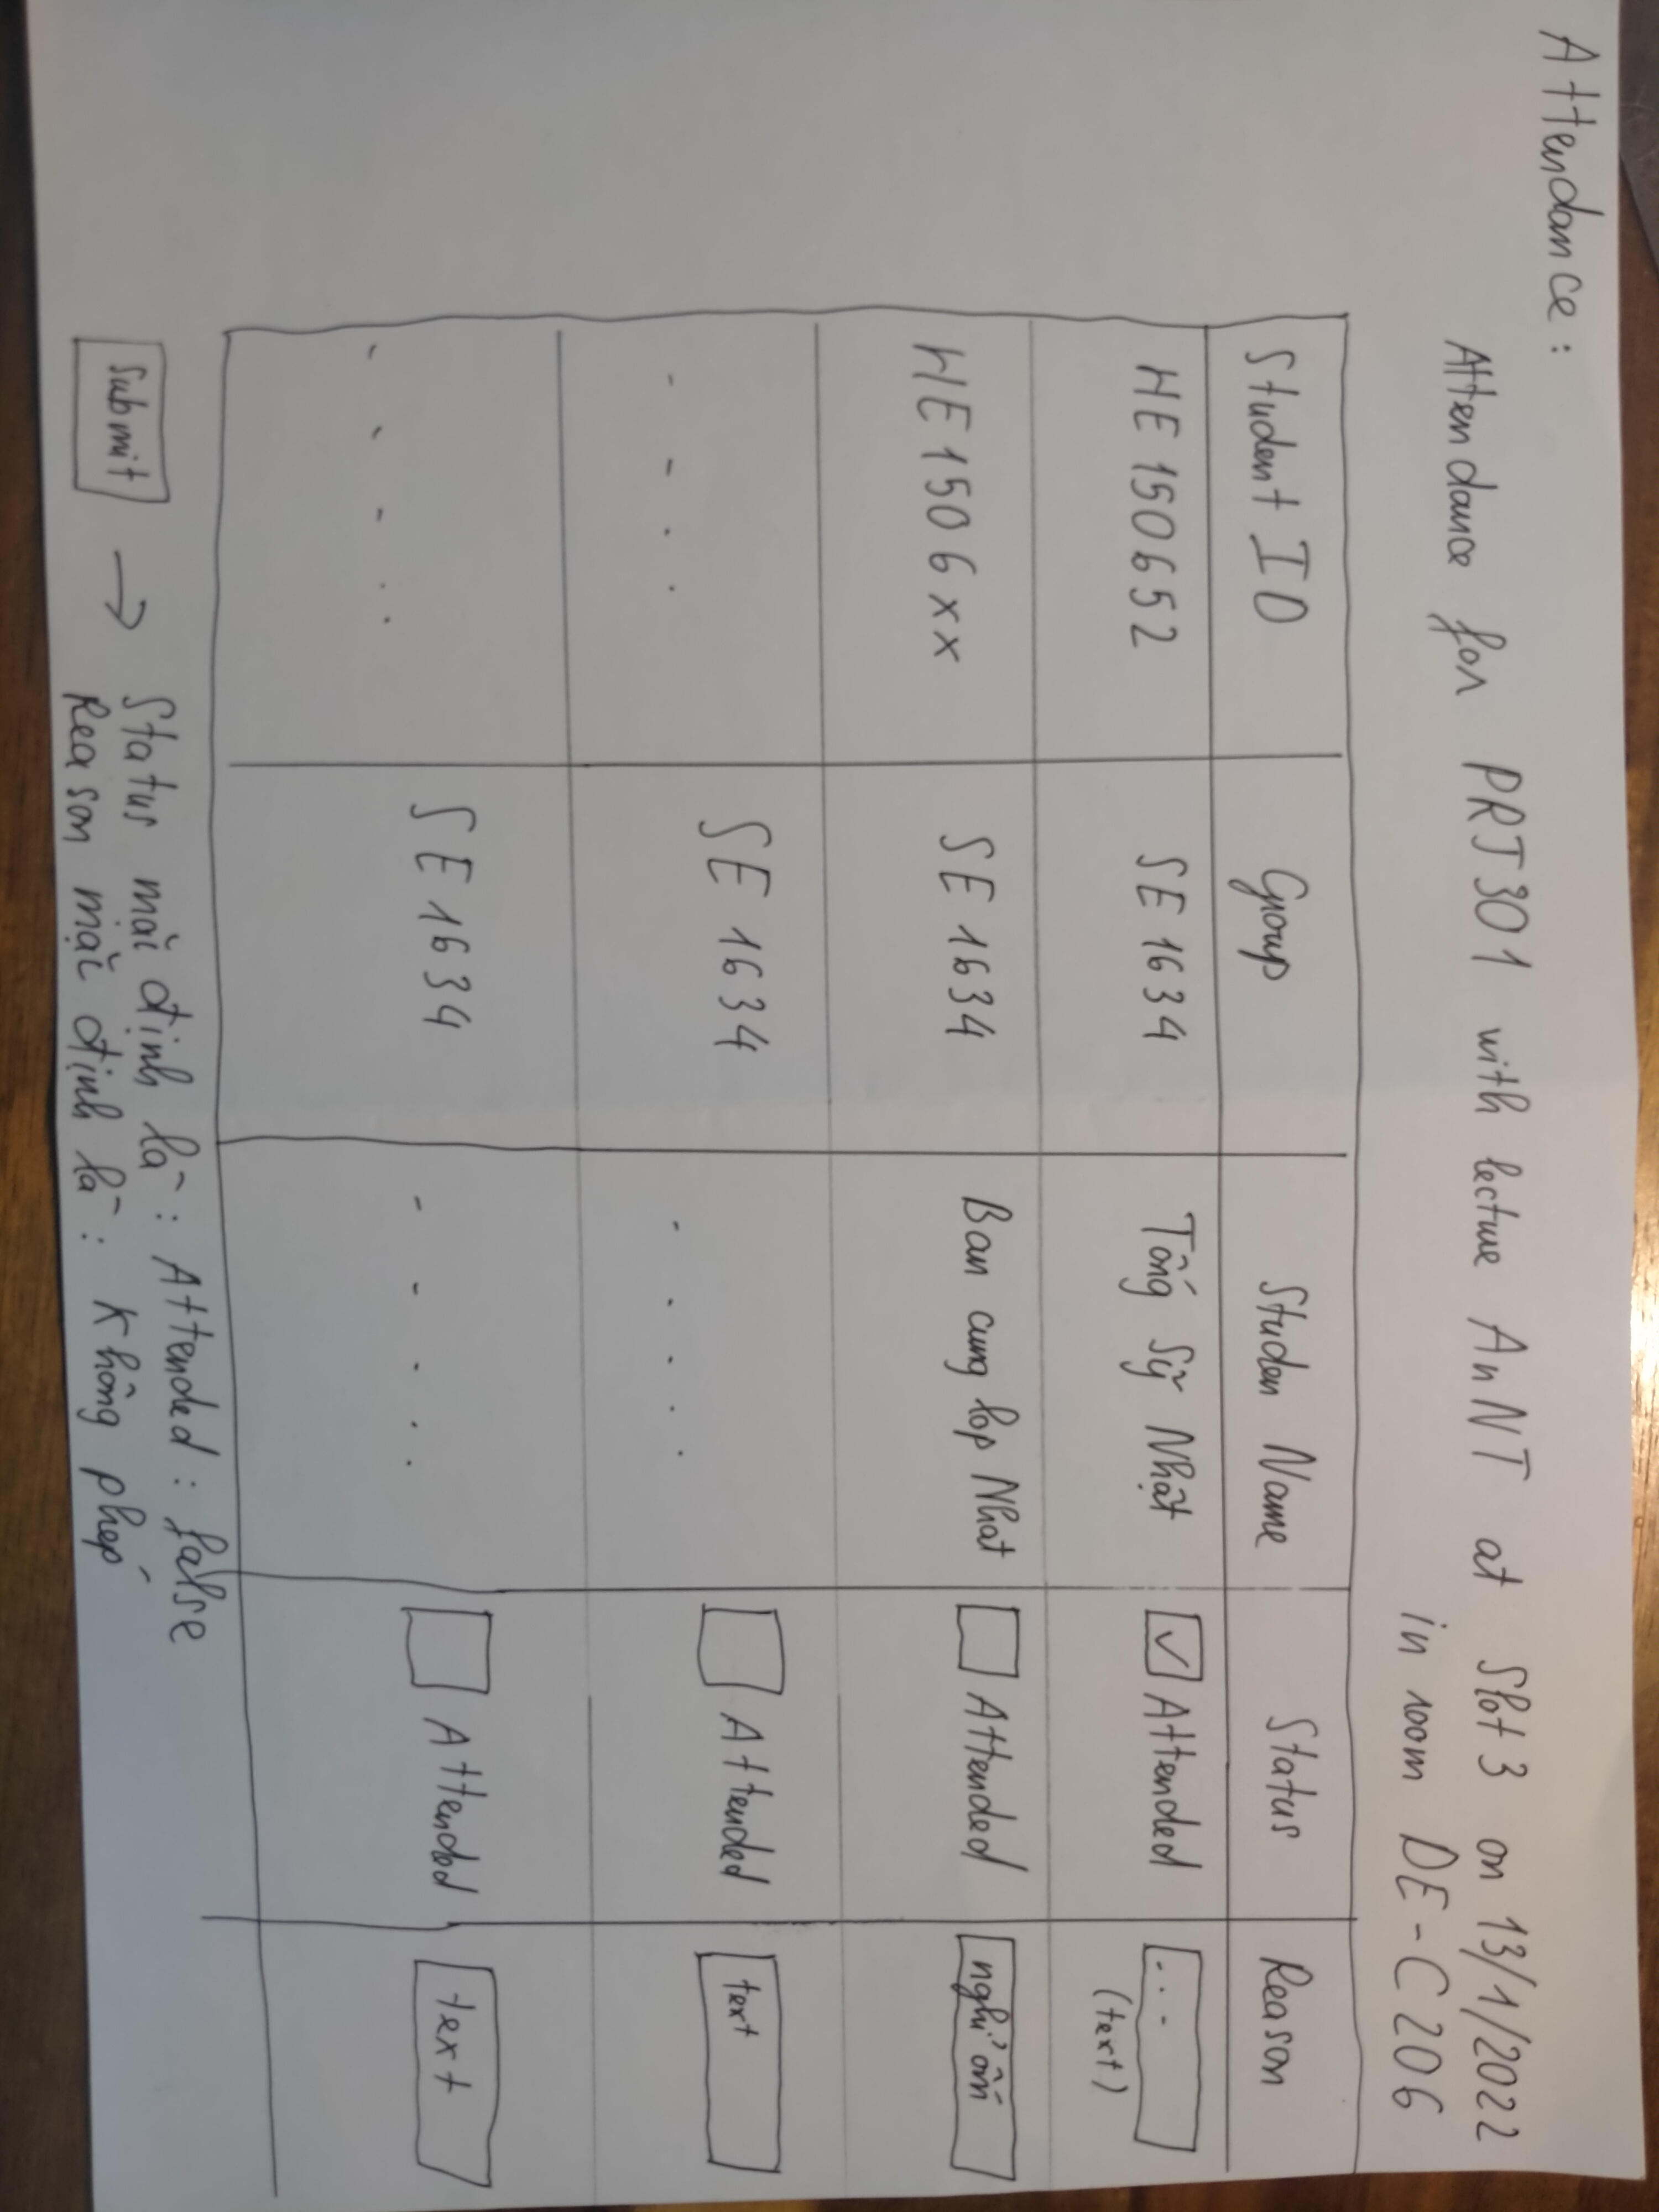 Attendance :
Attendance for PRJ301 with lecture AnNT at Slot 3 on 13/1/2022
in room DE-C206
Student ID Group Studen Name Status Reason
HE 150652 SE 1634 Tống Sỹ Nhật ✓ Attended ...
(text)
HE1506xx SE 1634 Ban cung lop Nhat Attended nghỉ ốm
. . . . SE 1634 . . . . . Attended text
. . . . . SE 1634 . . . . . Attended text
Submit → Status mặc định là : Attended : false
Reason mặc định là : Không phép